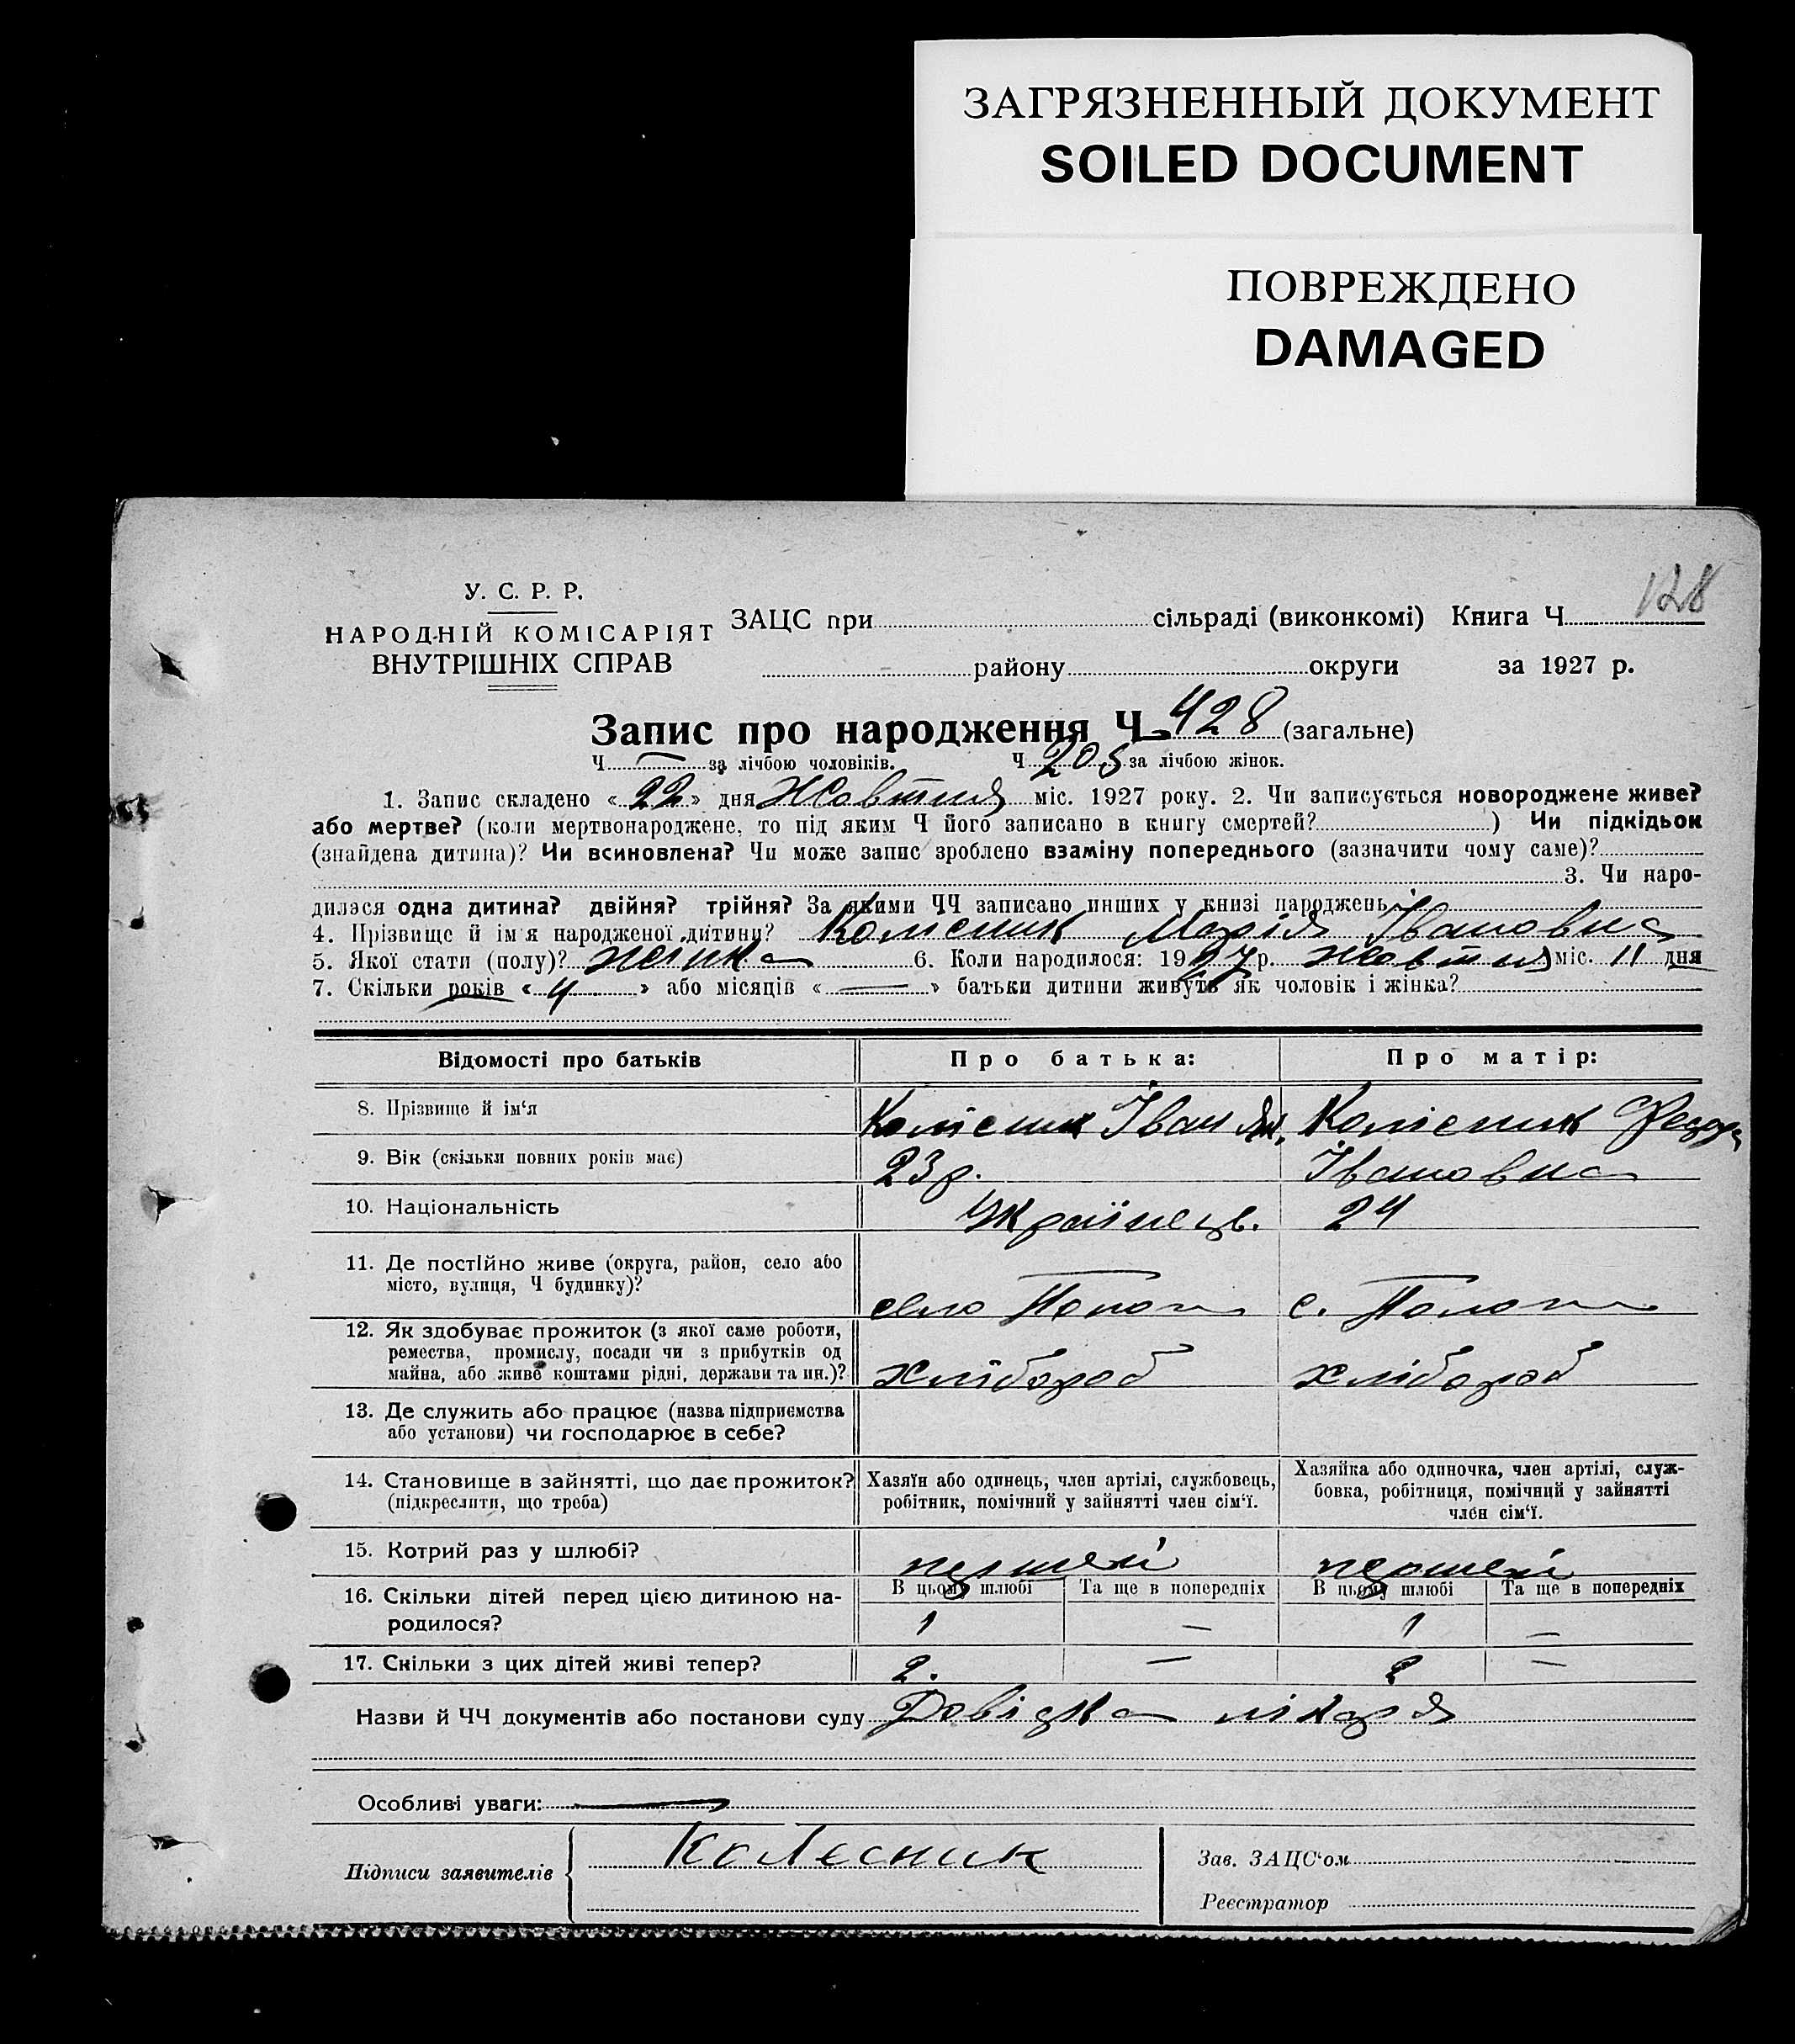 ЗАГРЯЗНЕННЫЙ ДОКУМЕНТ
SOILED DOCUMENT
ПОВРЕЖДЕНО
DAMAGED
128
У. С. Р. Р.
НАРОДНІЙ КОМІСАРІЯТ
ВНУТРІШНІХ СПРАВ
ЗАЦС при сільраді (виконкомі) Книга Ч
району округи за 1927 р.
Запис про народження Ч 428 (загальне)
Ч — за лічбою чоловіків. Ч 205 за лічбою жінок.
1. Запис складено « 22 » дня Жовтня міс. 1927 року. 2. Чи записується новороджене живе?
або мертве? (коли мертвонароджене, то під яким Ч його записано в книгу смертей? ) Чи підкідьок
(знайдена дитина)? Чи всиновлена? Чи може запис зроблено взаміну попереднього (зазначити чому саме)?
3. Чи наро-
дилася одна дитина? двійня? трійня? За якими ЧЧ записано инших у книзі народжень
4. Прізвище й ім'я народженої дитини? Колісник Марія Івановна
5. Якої стати (полу)? жінка 6. Коли народилося: 1927 р. жовтня міс. 11 дня
7. Скільки років « 4 » або місяців « — » батьки дитини живуть як чоловік і жінка?
Відомості про батьків Про батька: Про матір:
8. Прізвище й ім'я Колісник Іван Колісник
9. Вік (скільки повних років має) 23 р. Івановна
10. Національність Українець. 24
11. Де постійно живе (округа, район, село або
місто, вулиця, Ч будинку)? село с.
12. Як здобуває прожиток (з якої саме роботи,
ремества, промислу, посади чи з прибутків од
майна, або живе коштами рідні, держави та ин.)? хлібороб хлібороб
13. Де служить або працює (назва підприємства
або установи) чи господарює в себе?
14. Становище в зайнятті, що дає прожиток? Хазяїн або одинець, член артілі, службовець, Хазяйка або одиночка, член артілі, служ-
(підкреслити, що треба) робітник, помічний у зайнятті член сім'ї. бовка, робітниця, помічний у зайнятті
член сім'ї.
15. Котрий раз у шлюбі? перший перший
16. Скільки дітей перед цією дитиною на- В цьому шлюбі Та ще в попередніх В цьому шлюбі Та ще в попередніх
родилося? 1 — 1 —
17. Скільки з цих дітей живі тепер? 2. — 2 —
Назви й ЧЧ документів або постанови суду Довідка лікаря
Особливі уваги: —
Підписи заявителів Колєсник
Зав. ЗАЦС'ом
Реєстратор